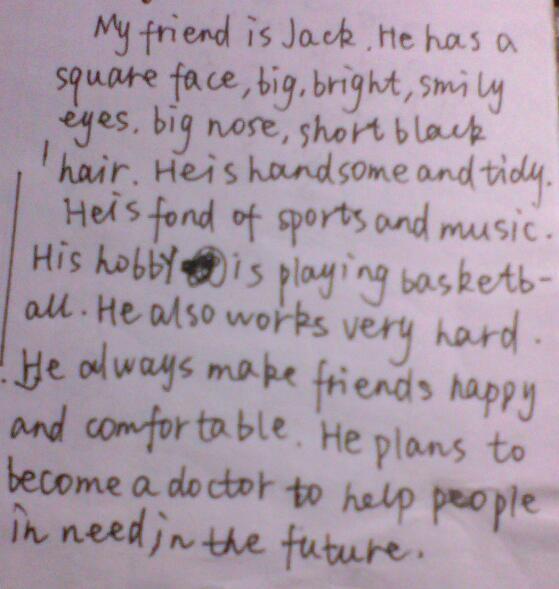 My friend is Jack. He has a
square face, big, bright, smily
eyes. big nose, short black
hair. He is handsome and tidy.
He is fond of sports and music.
His hobby is playing basketb-
all. He also works very hard.
He always make friends happy
and comfortable. He plans to
become a doctor to help people
in need, in the future.